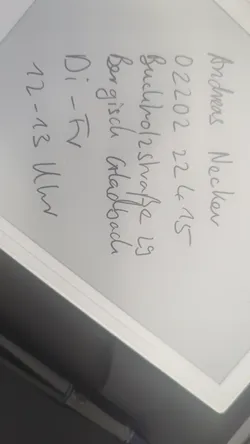 Andreas Necker
02202 22415
Buchholzstraße 29
Bergisch Gladbach
Di - Fr
12-13 Uhr